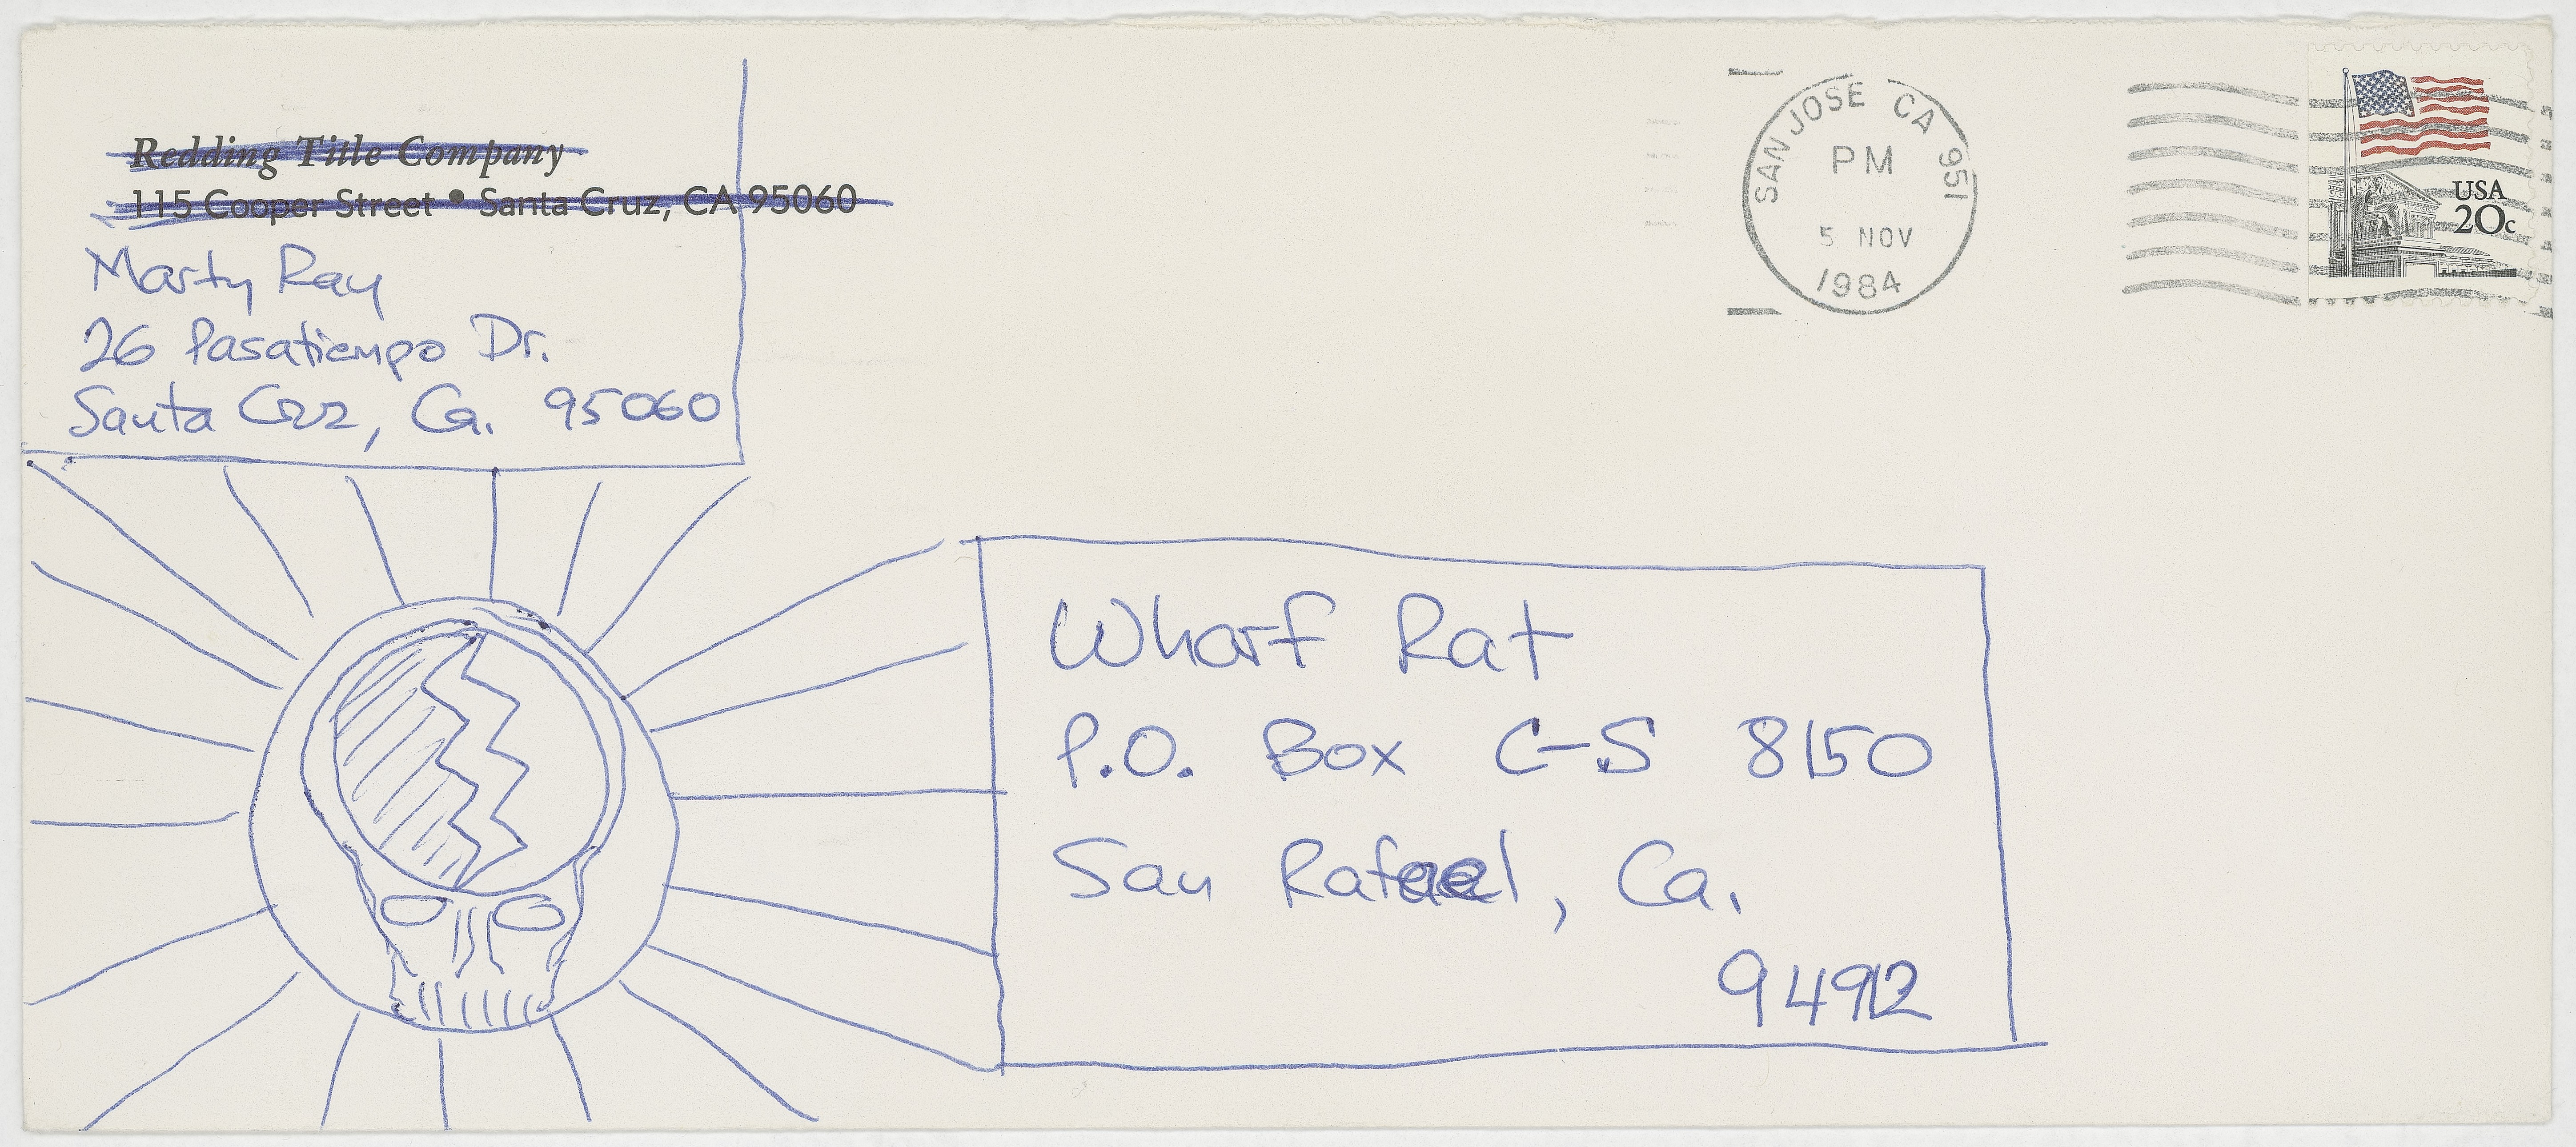 Redding Title Company
115 Cooper Street • Santa Cruz, CA 95060
Marty Ray
26 Pasatiempo Dr.
Santa Cruz, Ca. 95060
SAN JOSE CA 951
PM
5 NOV
1984
USA
20c
Wharf Rat
P.O. Box C-S 8150
San Rafael, Ca.
94912